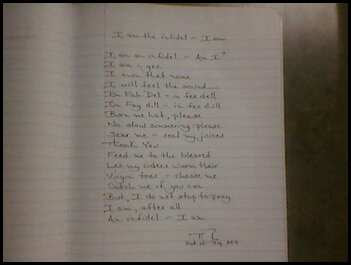 I am the infidel - I am
I am an infidel - Am I?
I am, yes
I own that name
I will feel the sound
In Fah Del - in fee dell
In Fay dill - in fee dell
Burn me hot, please
No slow simmering please
Sear me - seal my juices
Thank You
Feed me to the blessed
Let my embers warm their
Virgin toes - chase me
Catch me if you can
But, I do not stop to pray
I am, after all
An infidel - I am